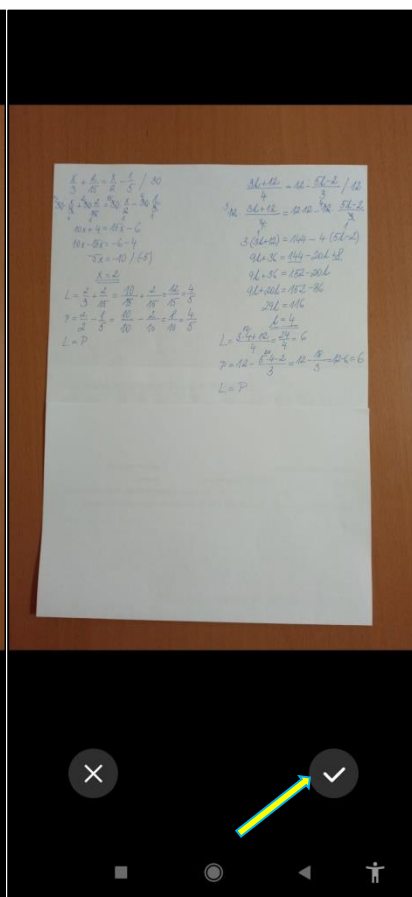 x/3 + 2/15 = x/2 - 1/5 / 30
10x + 4 = 15x - 6
10x - 15x = -6 - 4
-5x = -10 / (-5)
x = 2
L = 2/3 + 2/15 = 10/15 + 2/15 = 12/15 = 4/5
P = 2/2 - 1/5 = 10/10 - 2/10 = 8/10 = 4/5
L = P
3k+12/4 = 12 - 5k-2/3 / 12
12 3k+12/4 = 12 12 - 12 5k-2/3
3(3k+12) = 144 - 4(5k-2)
9k+36 = 144 - 20k+8
9k+36 = 152 - 20k
9k+20k = 152 - 36
29k = 116
k = 4
L = 3·4+12/4 = 24/4 = 6
P = 12 - 5·4-2/3 = 12 - 18/3 = 12-6 = 6
L = P